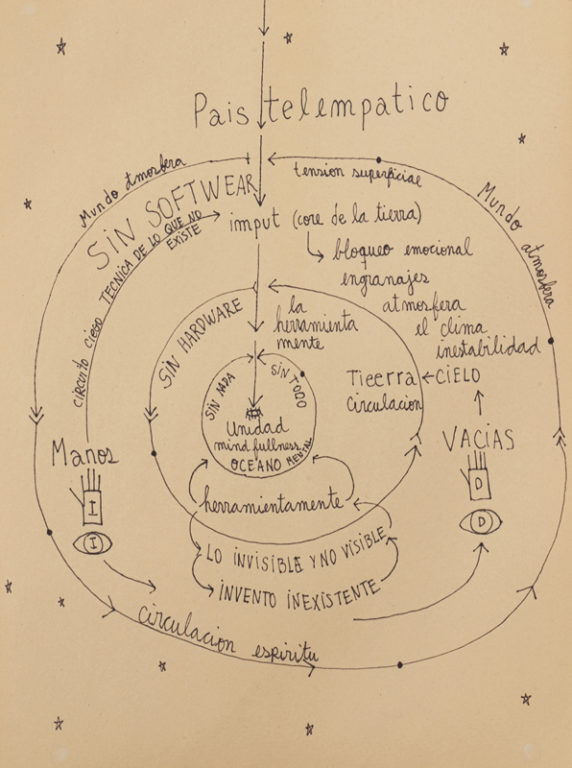 Pais telempatico
Mundo atmosfera
tension superficiae
Mundo atmosfera
SiN SOFTWEAR
CIRCUITO CIEGO TECNICA DE LO QUE NO
EXISTE
imput (core de la tierra)
bloqueo emocional
engranajes
atmosfera
el clima
inestabilidad
SiN HARDWARE
la
herramienta
mente
Tieerra
CiELO
Circulacion
SiN MAPA
SiN TODO
Unidad
mind fullness
OCEANO MENTAL
Manos
VACiAS
I
I
D
D
herramientamente
LO INViSiBLE Y NO ViSiBLE
iNVENTO iNEXiSTENTE
circulacion espiritu